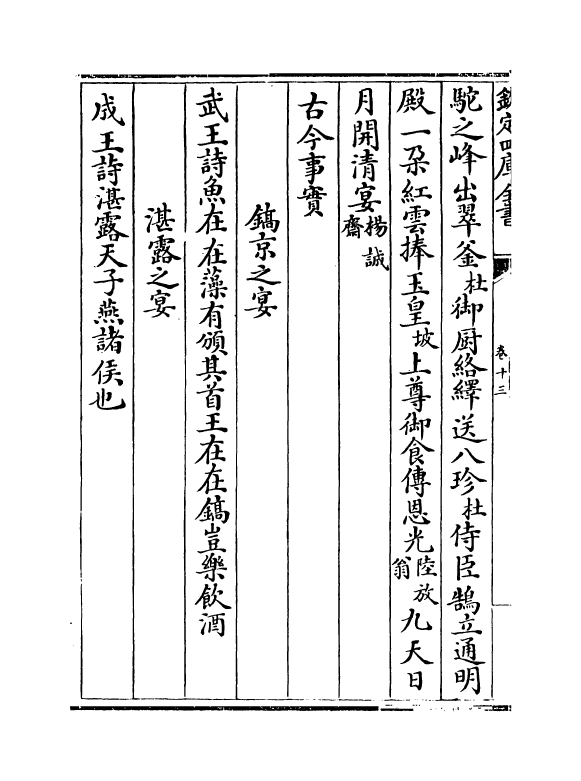 欽定四庫全書
卷十三
駝之峰出翠釜杜御厨絡繹送八珍杜侍臣鵠立通明
殿一朶紅雲捧玉皇坡上尊御食傳恩光陸放翁九天日
月開清宴楊誠齋
古今事實
鎬京之宴
武王詩魚在在藻有頒其首王在在鎬豈樂飲酒
湛露之宴
成王詩湛露天子燕諸侯也